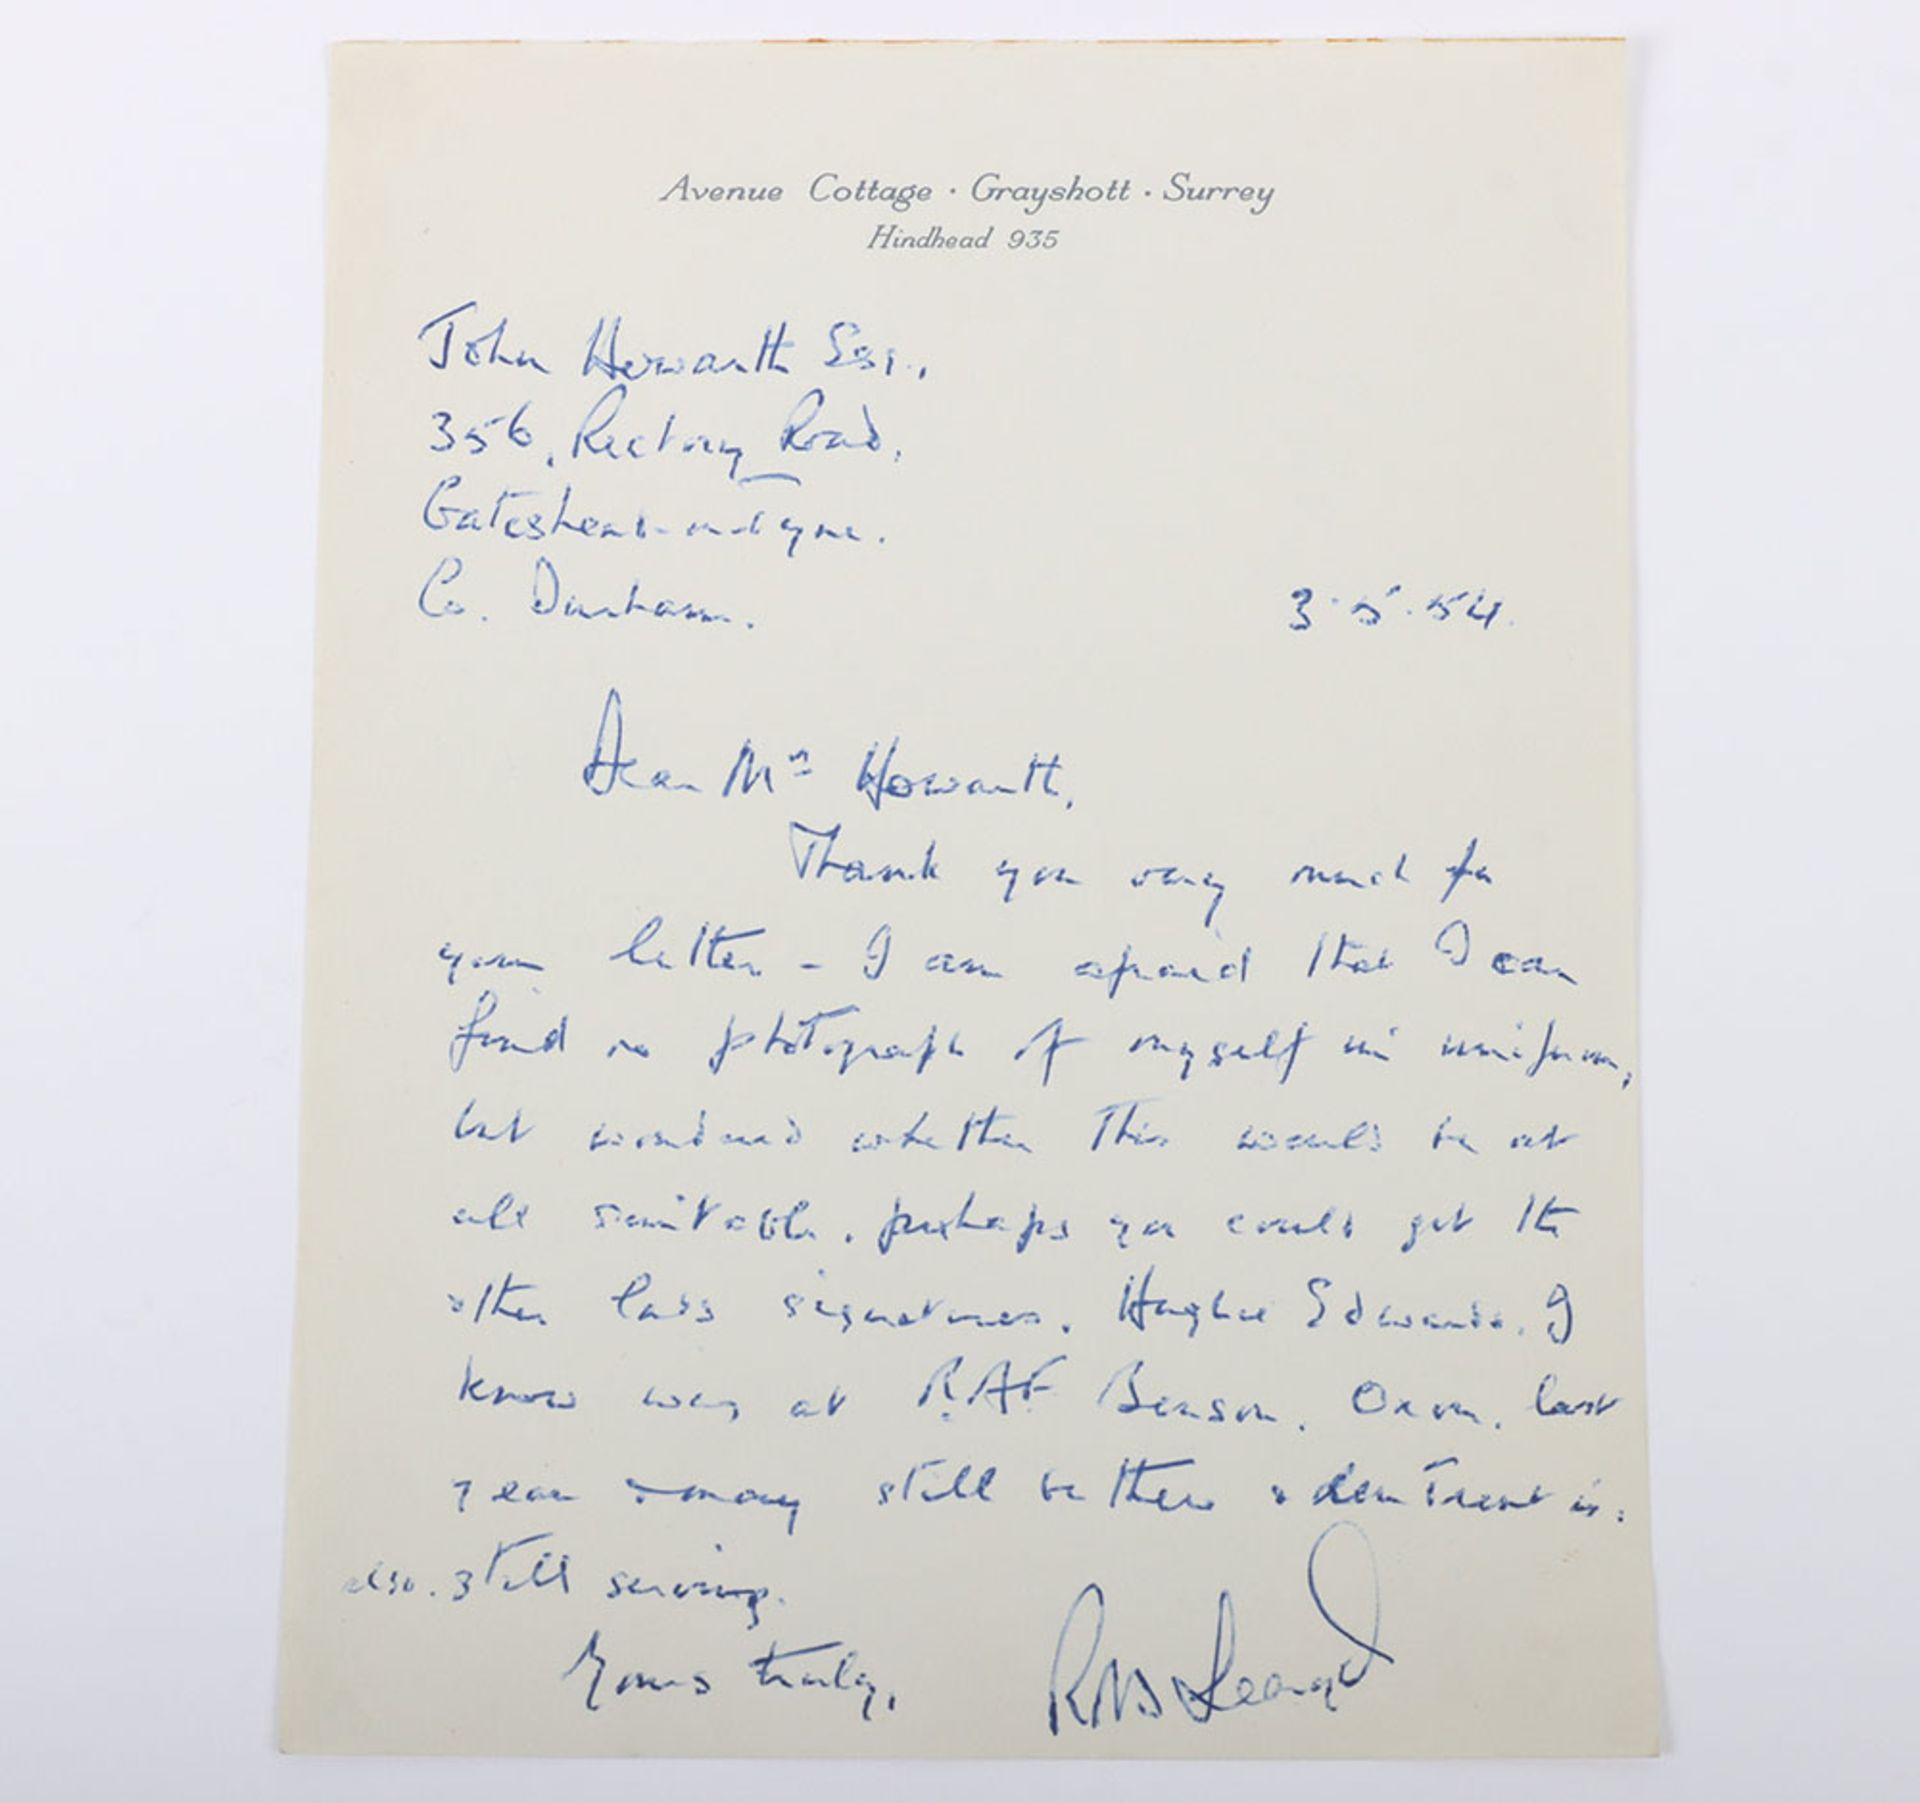 Avenue Cottage · Grayshott · Surrey
Hindhead 935
John Howarth Esq.,
356, Rectory Road,
Gateshead-on-Tyne.
Co. Durham.
3.5.54.
Dear Mr Howarth,
Thank you very much for
your letter - I am afraid that I can
find no photograph of myself in uniform,
but wondered whether this would be at
all suitable, perhaps you could get the
other lads signatures. Hughie Edwards, I
know was at R.A.F. Benson, Oxon, last
year & may still be there & Len Trent is
also still serving.
Yours truly,
RAB Learoyd